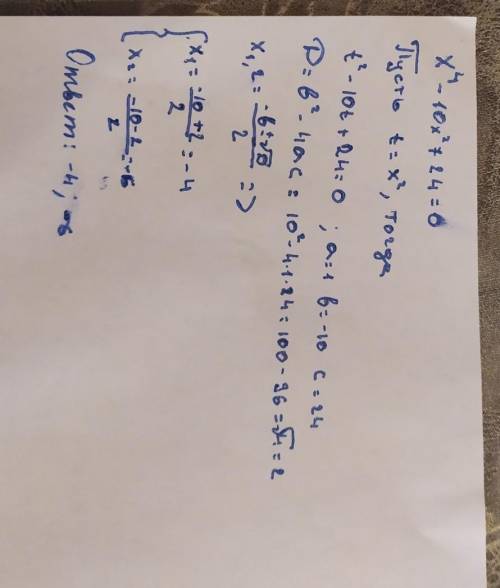 x⁴ - 10x² + 24 = 0
Пусть t = x², тогда
t² - 10t + 24 = 0 ; a = 1 b = -10 c = 24
D = b² - 4ac = 10² - 4·1·24 = 100 - 96 = √4 = 2
x₁,₂ = (-b ± √D)/2 =>
{ x₁ = (-10 + 2)/2 = -4
x₂ = (-10 - 2)/2 = -6
Ответ: -4 ; -6